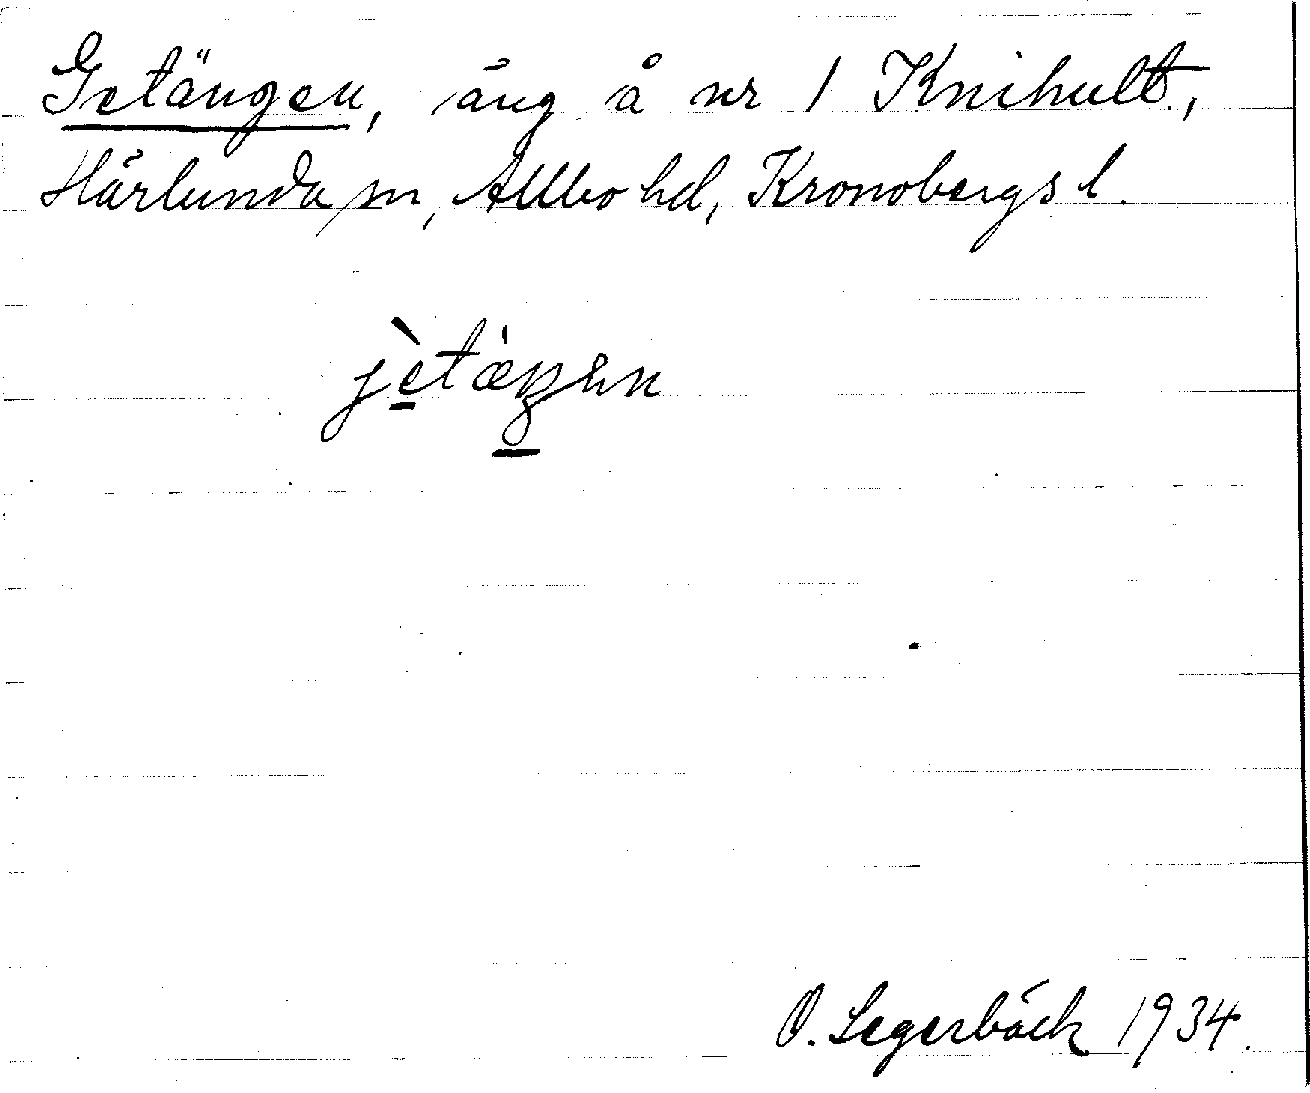 Getängen, äng å nr 1 Knihult,
Härlunda sn, Allbo hd, Kronobergs l.
jètæ̀ŋən
O. Segerbäck 1934.